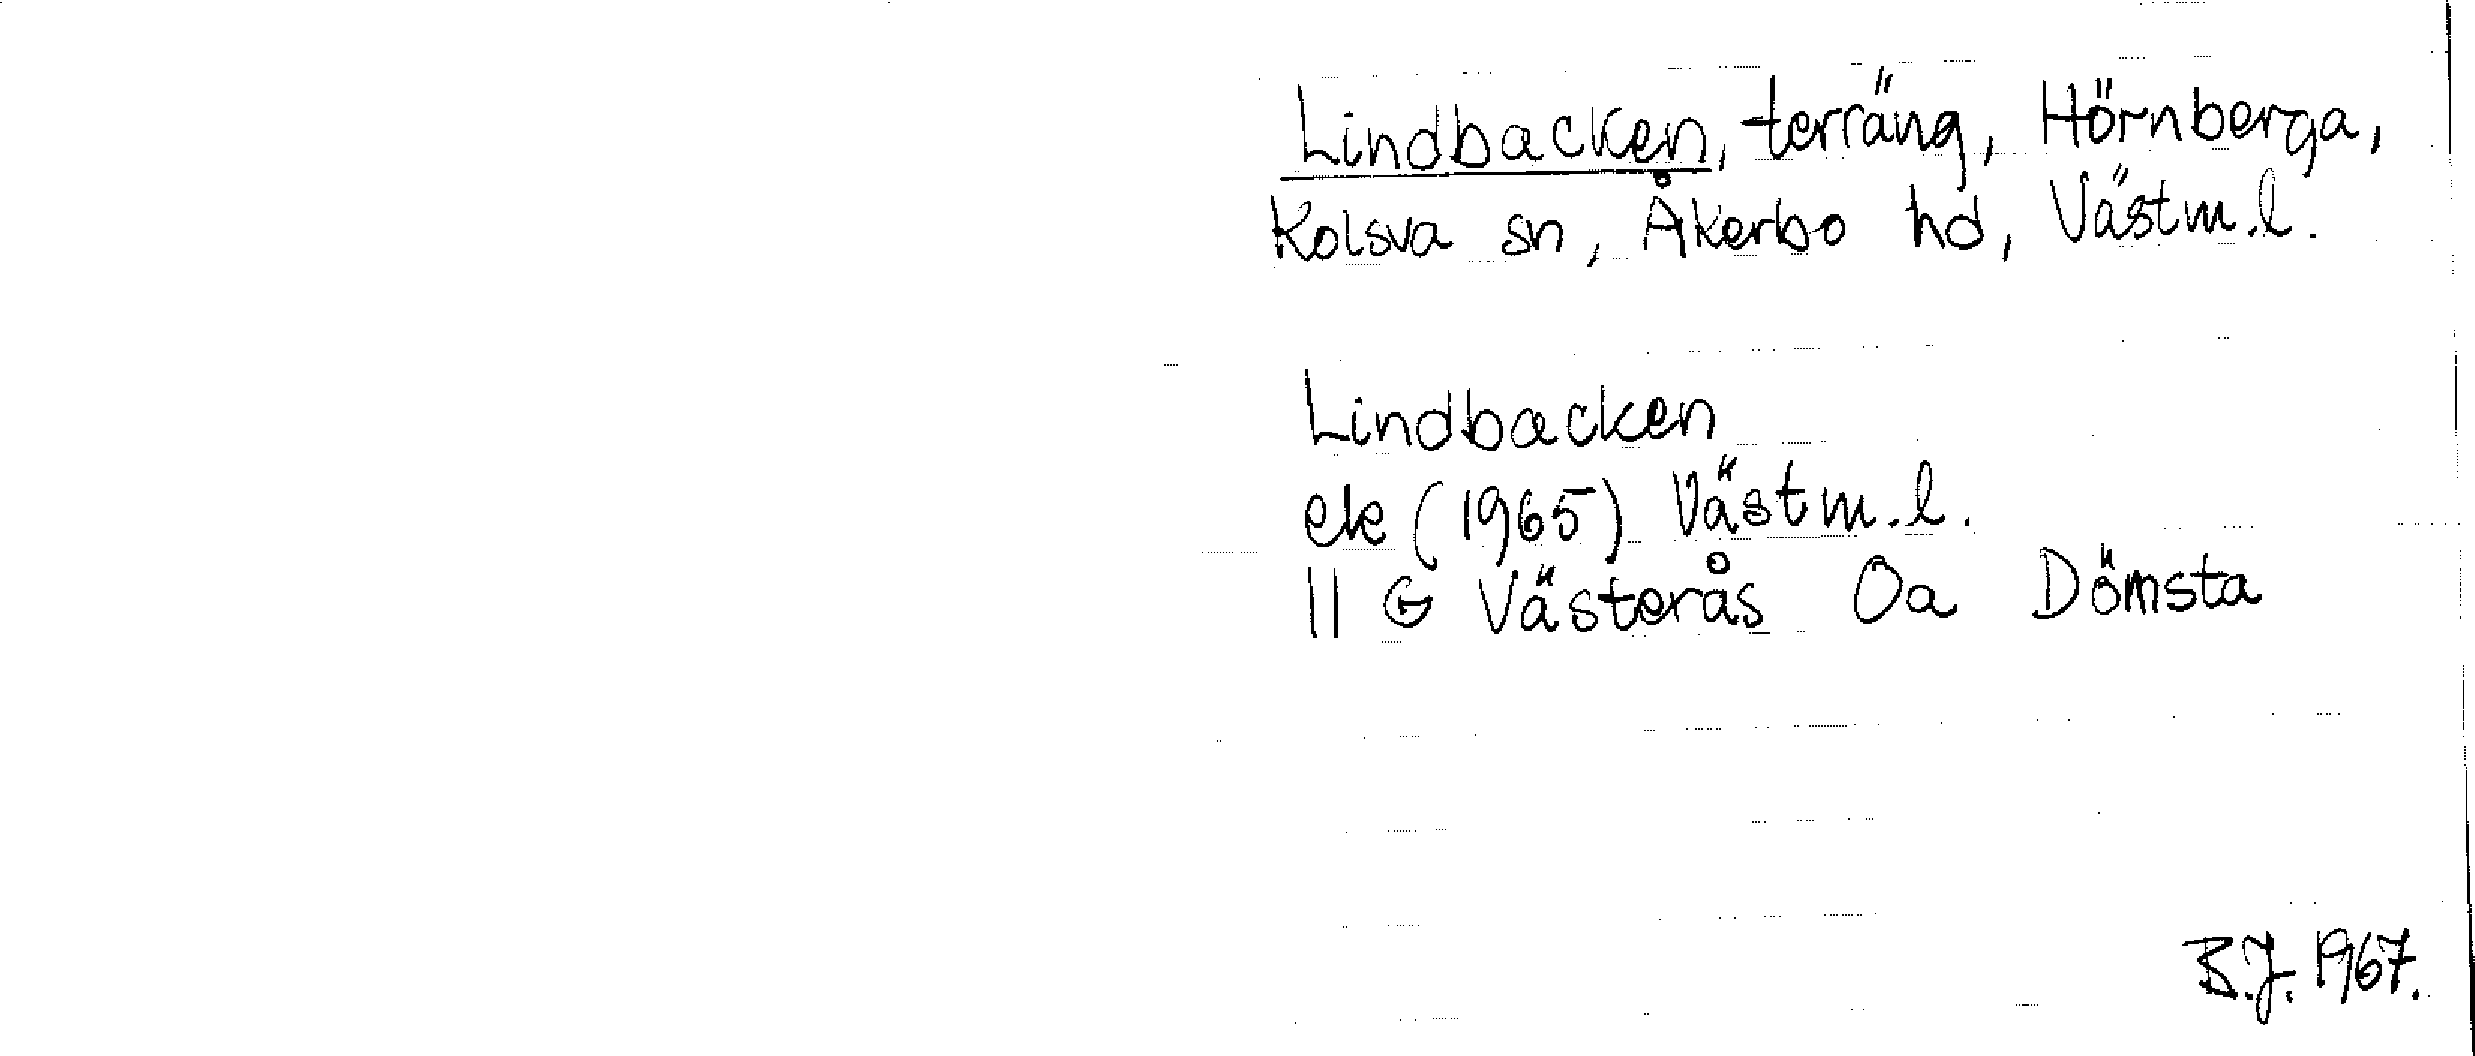 Lindbacken, terräng, Hörnberga,
Kolsva sn, Åkerbo hd, Västm.l.
Lindbacken
ek (1965) Västm.l.
11 G Västerås Oa Dömsta
B.J. 1967.